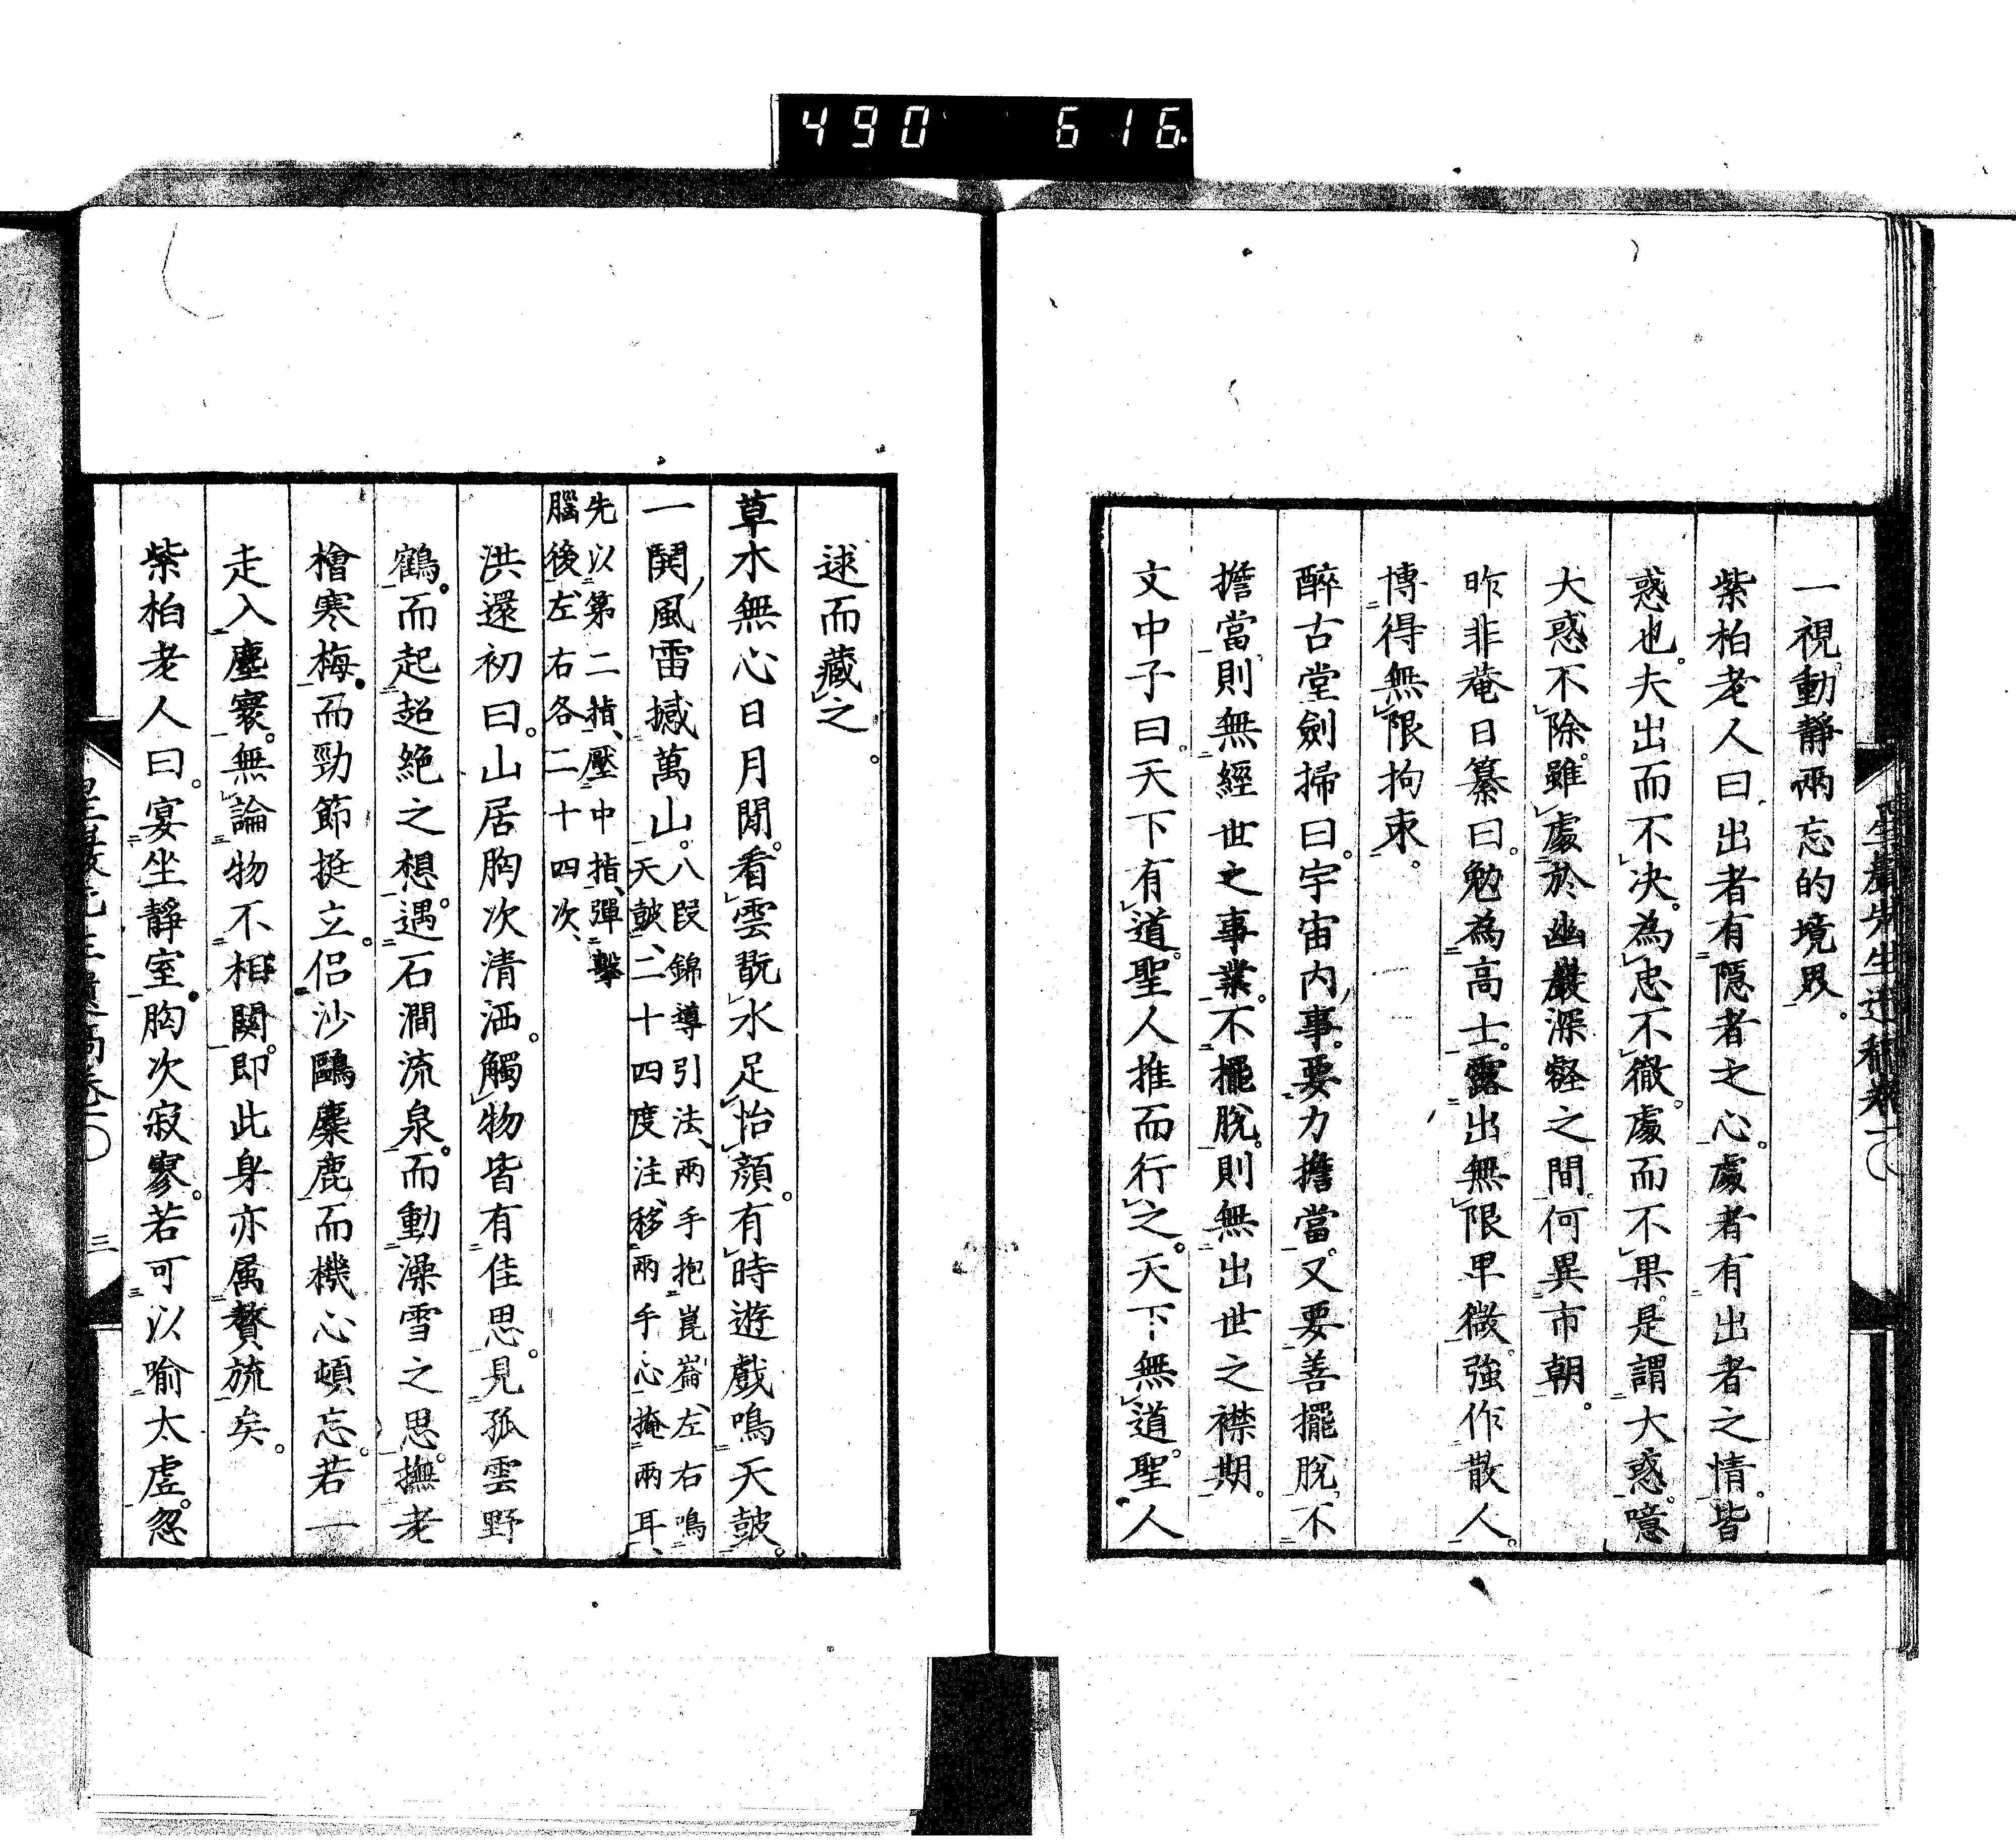 490 616
一視動靜兩忘的境界。
紫柏老人曰出者有隱者之心。處者有出者之情。皆
惑也。夫出而不决。為忠不徹。處而不果。是謂大惑。噫
大惑不除。雖處於幽巖深壑之間。何異市朝。
昨非菴日纂曰。勉為高士。露出無限卑微。強作散人。
博得無限拘束。
醉古堂劍掃曰。宇宙内事。要力擔當。又要善擺脫。不
擔當。則無經世之事業。不擺脫。則無出世之襟期。
文中子曰。天下有道。聖人推而行之。天下無道。聖人
逑而藏之。
草木無心日月閒。看雲翫水足怡顏。有時遊戲鳴天鼓。
一鬨風雷撼萬山。八段錦導引法、兩手抱崑崙、左右鳴
天鼓、二十四度注、移兩手心、掩兩耳、
先以第二指、壓中指、彈擊
腦後、左右各二十四次、
洪還初曰。山居胸次清洒。觸物皆有佳思。見孤雲野
鶴。而起超絶之想。遇石澗流泉。而動澡雪之思。撫老
檜寒梅。而勁節挺立。侣沙鷗麋鹿而機心頓忘。若一
走入塵寰。無論物不相関。即此身亦属贅旒矣。
紫柏老人曰。宴坐靜室。胸次寂寥。若可以喻太虚。忽
三